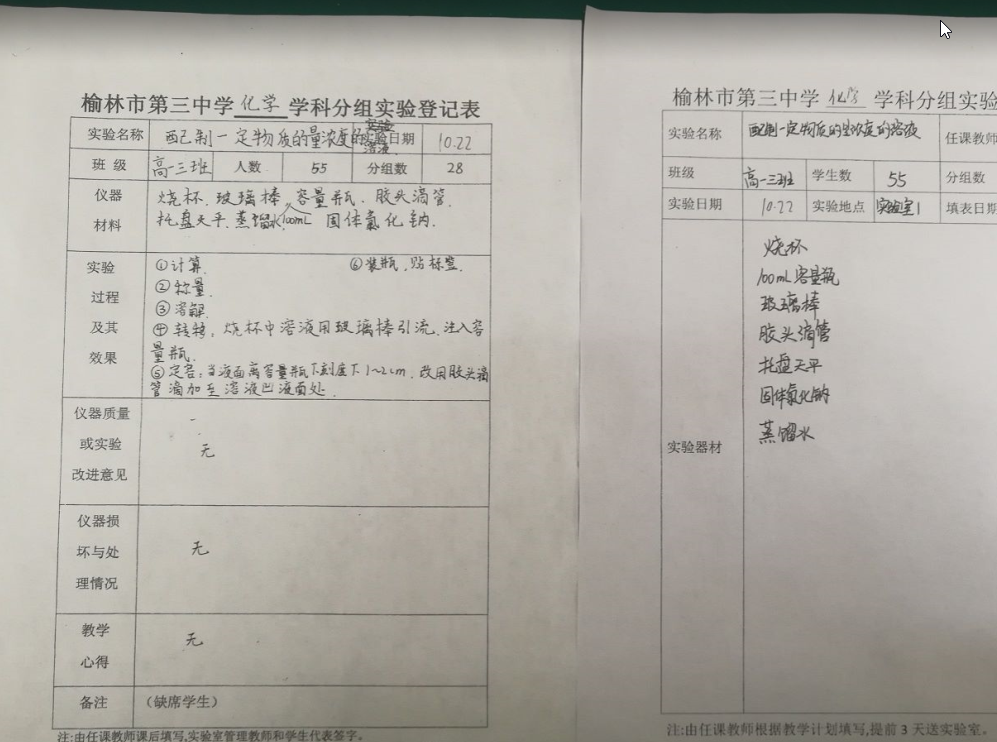 榆林市第三中学 化学 学科分组实验登记表
实验名称 配制一定物质的量浓度的溶液 实验日期 10.22
班 级 高一三班 人数 55 分组数 28
仪器 烧杯、玻璃棒、容量瓶、胶头滴管、
材料 托盘天平、蒸馏水、100mL 固体氯化钠.
实验 ①计算. ⑥装瓶、贴标签.
过程 ②称量.
③溶解
及其 ④转移:烧杯中溶液用玻璃棒引流、注入容
效果 量瓶.
⑤定容:当液面离容量瓶下刻度下1~2cm、改用胶头滴
管滴加至溶液凹液面处.
仪器质量
或实验 无
改进意见
仪器损
坏与处 无
理情况
教学 无
心得
备注 (缺席学生)
注:由任课教师课后填写,实验室管理教师和学生代表签字。
榆林市第三中学 化学 学科分组实验
实验名称 配制一定物质的量浓度的溶液 任课教师
班级 高一三班 学生数 55 分组数
实验日期 10.22 实验地点 实验室1 填表日期
烧杯
100mL容量瓶
玻璃棒
胶头滴管
托盘天平
固体氯化钠
蒸馏水
实验器材
注:由任课教师根据教学计划填写,提前3天送实验室。